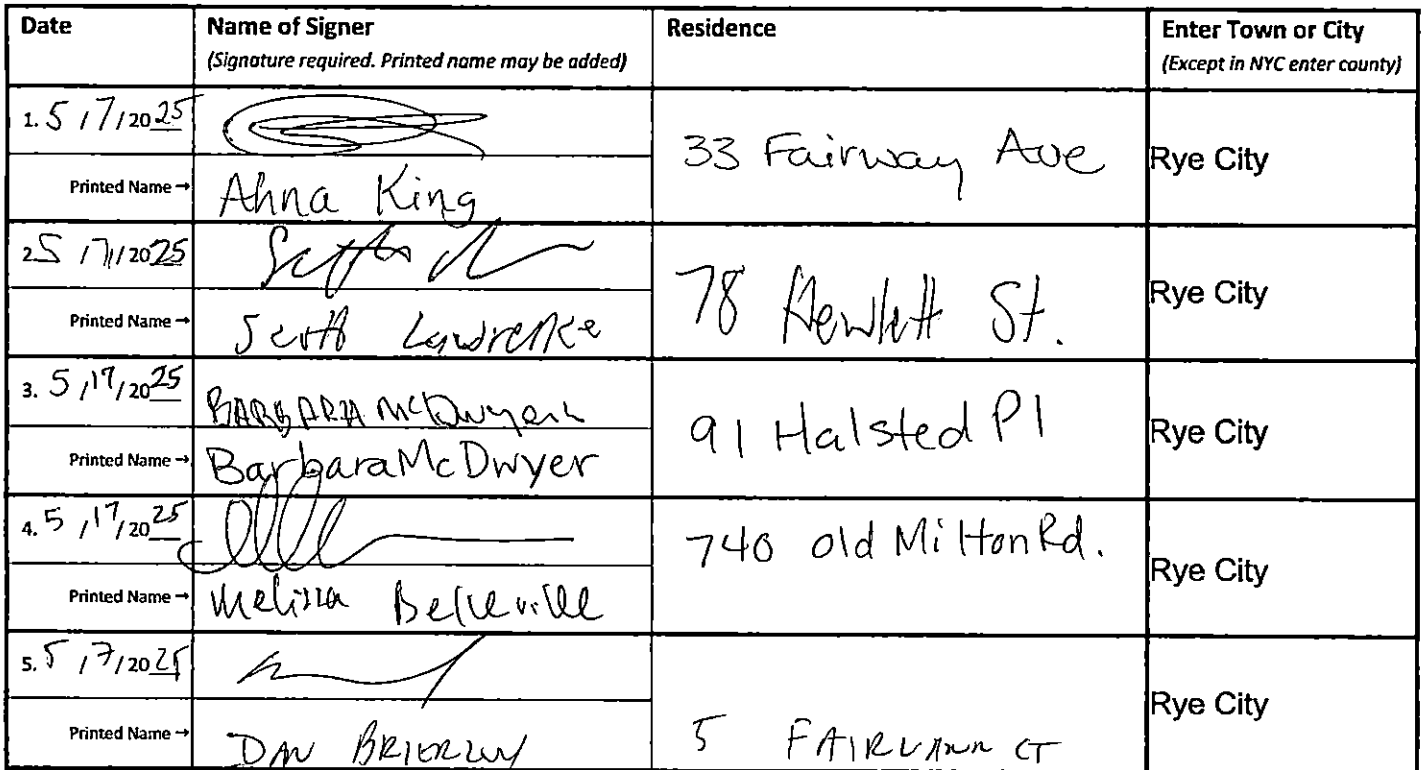 Date Name of Signer Residence Enter Town or City
(Signature required. Printed name may be added) (Except in NYC enter county)
1. 5/7/2025 33 Fairway Ave Rye City
Printed Name → Ahna King
2. 5/7/2025 78 Hewlett St. Rye City
Printed Name → Scott Lawrence
3. 5/17/2025 BARBARA McDwyer 91 Halsted Pl Rye City
Printed Name → Barbara McDwyer
4. 5/17/2025 740 old Milton Rd. Rye City
Printed Name → Melissa Belleville
5. 5/7/2025 Rye City
Printed Name → DAN 5 CT